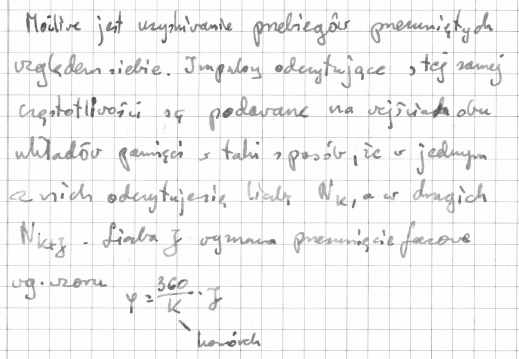 Możliwe jest uzyskiwanie przebiegów przesuniętych
względem siebie. Impulsy odczytujące z tej samej
częstotliwości są podawane na wejściach obu
układów pamięci w taki sposób, że w jednym
z nich odczytuje się liczbę N_K, a w drugich
N_{K+J}. Liczba J wyznacza przesunięcie fazowe
wg. wzoru φ = 360/K · J
komórek